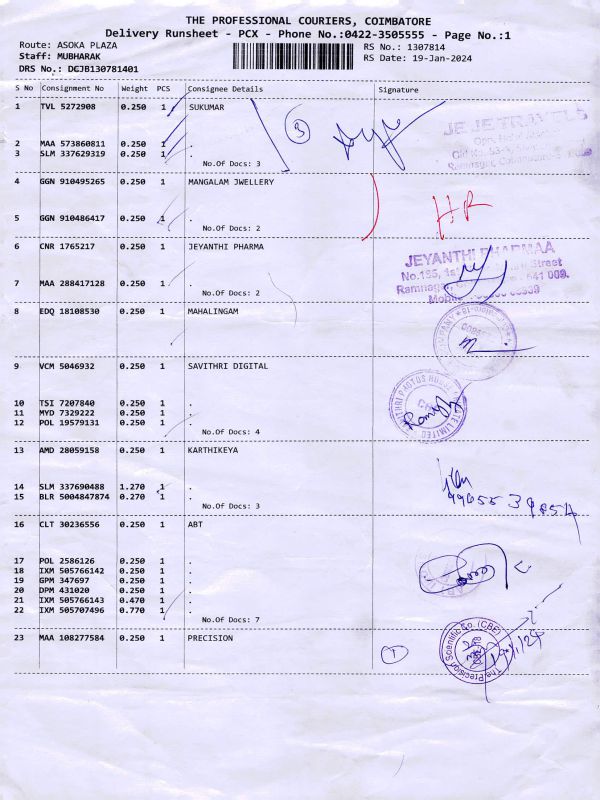 THE PROFESSIONAL COURIERS, COIMBATORE
Delivery Runsheet - PCX - Phone No.:0422-3505555 - Page No.:1
Route: ASOKA PLAZA RS No.: 1307814
Staff: MUBHARAK RS Date: 19-Jan-2024
DRS No.: DCJB130781401
S No Consignment No Weight PCS Consignee Details Signature
1 TVL 5272908 0.250 1 SUKUMAR
3
JE JE TRAVELS
2 MAA 573860811 0.250 1 .
3 SLM 337629319 0.250 1 .
No.Of Docs: 3
4 GGN 910495265 0.250 1 MANGALAM JWELLERY
5 GGN 910486417 0.250 1 .
No.Of Docs: 2
6 CNR 1765217 0.250 1 JEYANTHI PHARMA
JEYANTHI PHARMAA
Street
7 MAA 288417128 0.250 1 .
No.Of Docs: 2
8 EDQ 18108530 0.250 1 MAHALINGAM
9 VCM 5046932 0.250 1 SAVITHRI DIGITAL
10 TSI 7207840 0.250 1 .
11 MYD 7329222 0.250 1 .
12 POL 19579131 0.250 1 .
No.Of Docs: 4
13 AMD 28059158 0.250 1 KARTHIKEYA
14 SLM 337690488 1.270 1 .
15 BLR 5004847874 0.270 1 .
No.Of Docs: 3
16 CLT 30236556 0.250 1 ABT
17 POL 2586126 0.250 1 .
18 IXM 505766142 0.250 1 .
19 GPM 347697 0.250 1 .
20 DPM 431020 0.250 1 .
21 IXM 505766143 0.470 1 .
22 IXM 505707496 0.770 1 .
No.Of Docs: 7
23 MAA 108277584 0.250 1 PRECISION
1
The Precision Scientific Co. (CBE)
19/1/24